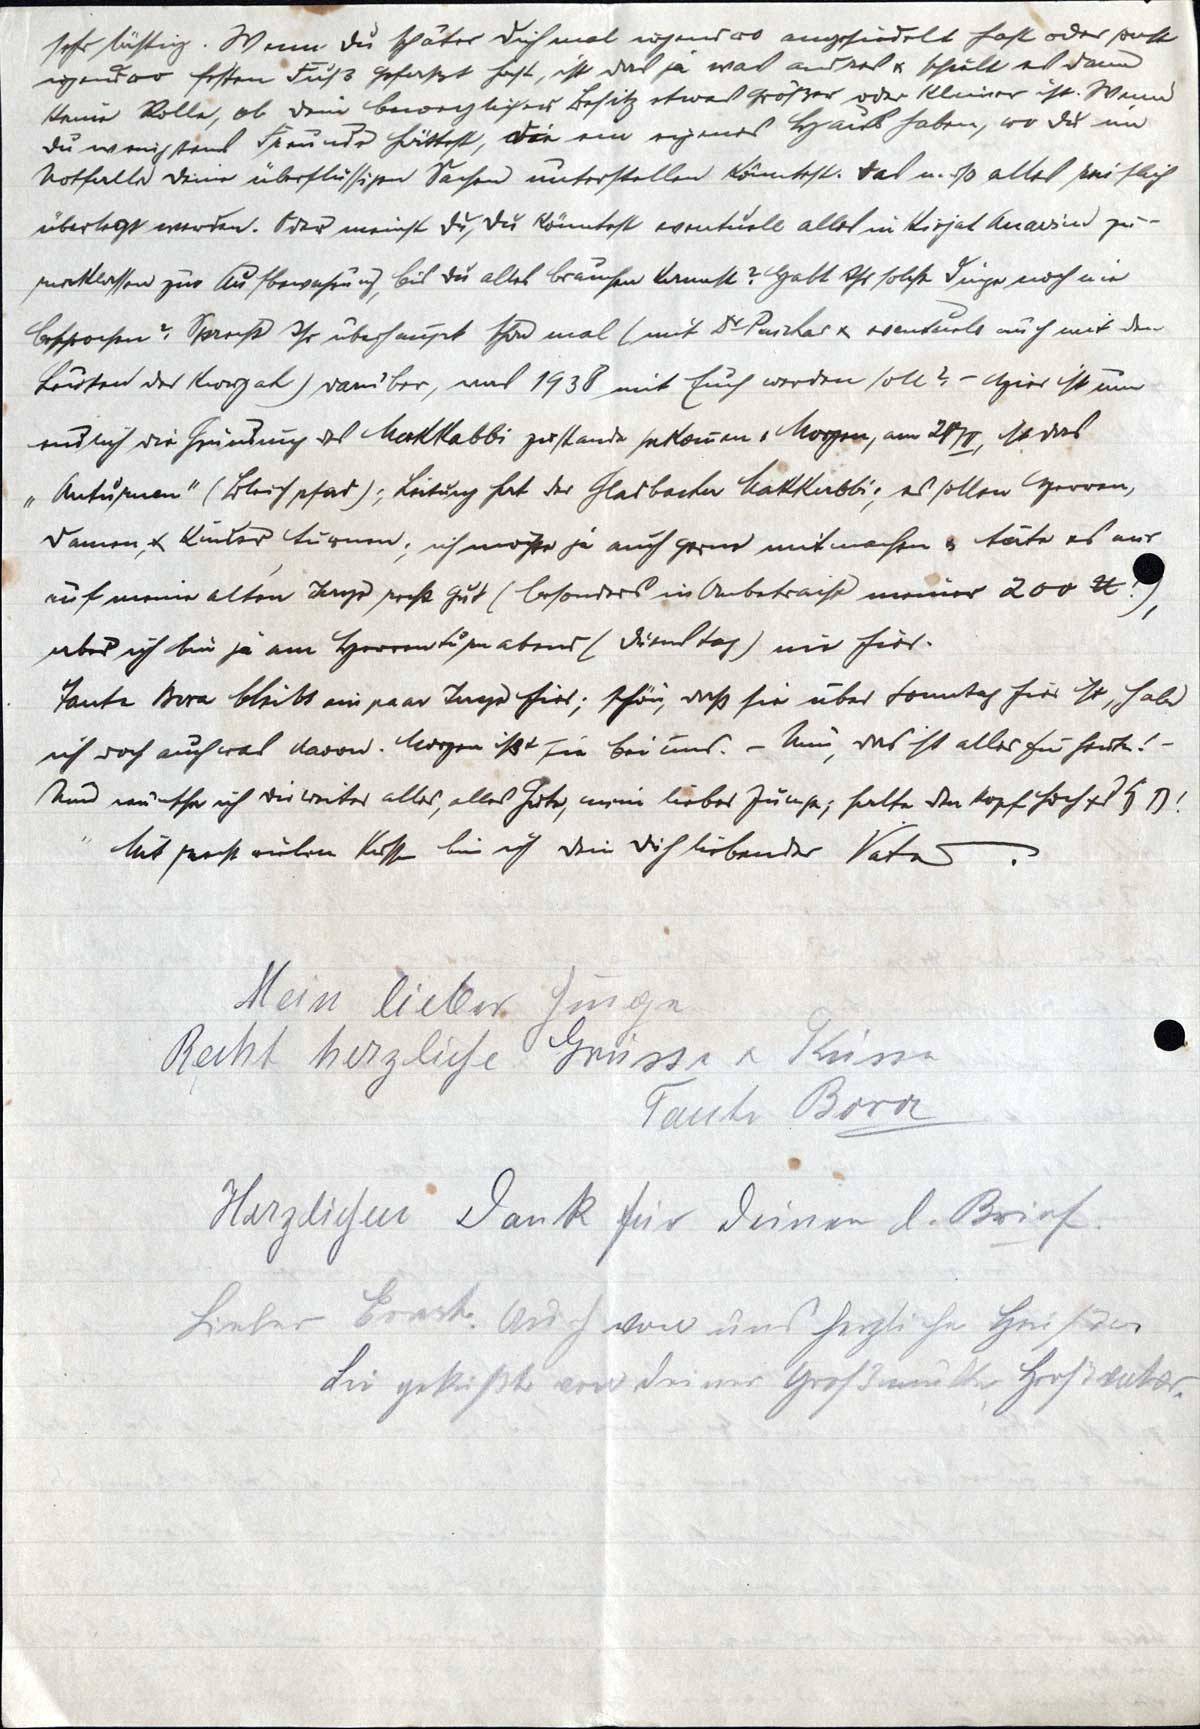 sehr lästig. Wenn Du später Dich mal irgendwo angesiedelt hast oder sonst
irgendwo festen Fuß gefaßt hast, ist das ja was andres & spielt es dann
keine Rolle, ob dein beweglicher Besitz etwas größer oder kleiner ist. Wenn
du wenigstens Freunde hättest, die ein eigenes Haus haben, wo du im
Notfalle deine überflüssigen Sachen unterstellen könntest. Das muß alles reiflich
überlegt werden. Oder meinst Du, Du könntest eventuell alles in Kirjat Anavim zu-
rücklassen zur Aufbewahrung, bis Du alles brauchen kannst? Habt Ihr solche Dinge noch nie
besprochen? Sprecht Ihr überhaupt schon mal (mit Dr & eventuell auch mit den
Leuten der Kwuzah) darüber, was 1938 mit Euch werden soll? – Hier ist nun
endlich die Gründung des Makkabbi zustande gekommen. Morgen, am ist das
„Anturnen" (Bleichpfad); Leitung hat der Gladbacher Makkabbi; es sollen Herren,
Damen, & Kinder turnen; ich möchte ja auch gerne mitmachen & täte es mir
auf meine alten Tage recht gut (besonders in Anbetracht meiner 200 ℔!),
aber ich bin ja am Herrenturnabend (Dienstag) nie hier.
Tante Bora bleibt ein paar Tage hier; schön, daß sie über Sonntag hier ist, habe
ich doch auch was davon. Morgen ißt sie bei uns. – Nun, das ist alles für heute! –
Und wünsche ich dir weiter alles, alles Gute, mein lieber Junge; halte den Kopf hoch
Mit recht vielen Küssen bin ich dein Dich liebender Vater.
Mein lieber Junge
Recht herzliche Grüsse & Küsse
Tante Bora
Herzlichen Dank für Deinen l. Brief.
Lieber Ernst. Auch von uns herzliche Grüße
Sei geküßt von Deiner Großmutter, Großvater.